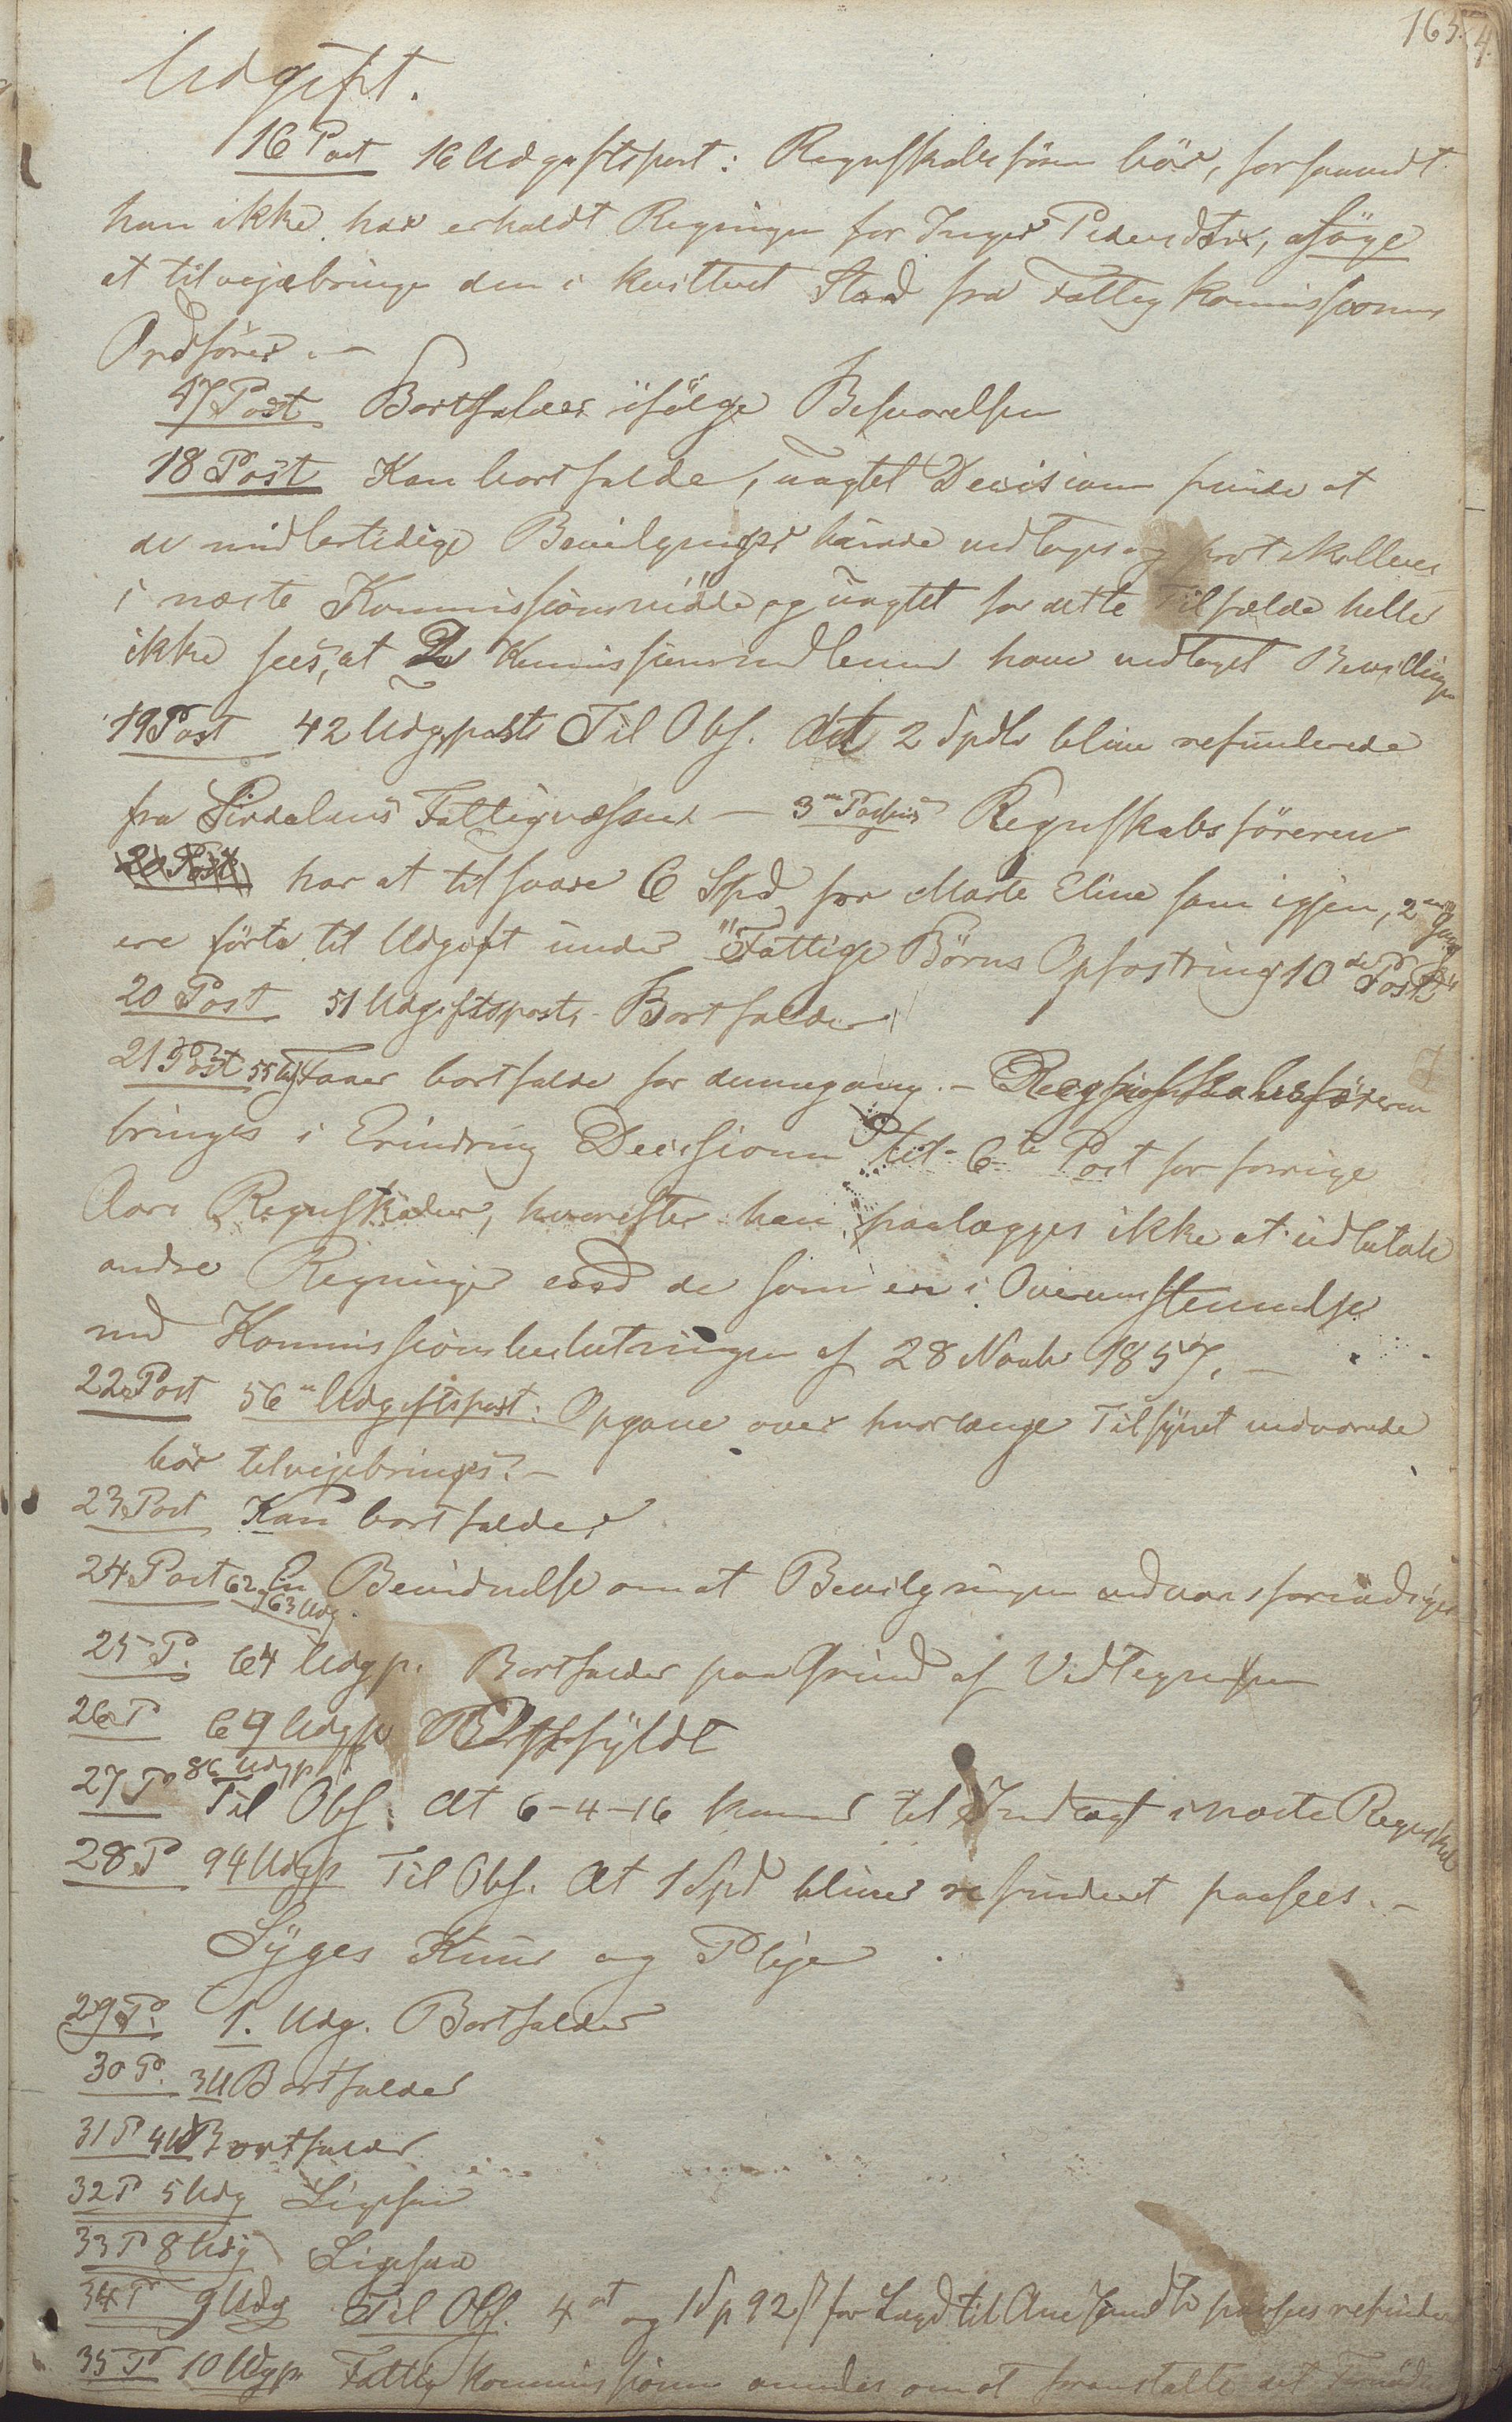 163.
4.
Udgift.
16 Post 16 Udgiftspost: Regnskabsføren bør, forsaavidt
han ikke har erholdt Regningen for Inger Pedersdtr, søge
at tilvejebringe den i kvitteret Stand fra Fattigkommissionens
Ordfører. —
17 Post Bortfalder ifølge Besvarelsen
18 Post Kan bortfalde, uagtet Decisionen at
de midlertidige Bevilgninger burde vedtages og protokolleres
i næste Kommissionsmøde, og uagtet for dette Tilfælde heller
ikke sees, at Kommissionsmedlemmer have vedtaget Bevilgningen
19 Post 42 Udgpost Til Obs. At 2 Spdlr blive refunderede
fra Sirdalens Fattigvæsen — Regnskabsføreren
har at tilsvare 6 Spd for Marte Eline som igjen, 2den Gang
ere førte til Udgift under "Fattige Børns Opfostring 10de Post"
20 Post 51 Udgiftspost, Bortfalder
21 Post 55 Udg Faaer bortfalde for dennegang. — Regnskabsføreren
bringes i Erindring Decisionen til 6te Post for forrige
Aars Regnskaber, hvorefter han paalægges ikke at udbetale
andre Regninger end de som ere i Overensstemmelse
med Kommissionsbeslutningen af 28 Novbr 1857. —
22 Post 56 Udgiftspost: Opgave over hvorlænge Tilsynet medvarede
bør tilvejebringes. —
23 Post Kan bortfalde.
24 Post 62 En Bevidnelse om at Bevilgningen
63 Udg.
25 P. 64 Udgp. Bortfalder paa Grund af Vedtegnelsen
26 P 69 Udgp Opfyldt
27 P 86 Udgp Til Obs. At 6-4-16 kommer til Indtægt i næste Regnskab
28 P 94 Udgp Til Obs. At 1 Spd bliver refunderet paasees. —
Syges Kuur og Pleje.
29 P. 1. Udg. Bortfalder
30 P. 3 U Bortfalder
31 P 4 U Bortfalder
32 P 5 Udg Ligesaa
33 P 8 Udg Ligesaa
34 P 9 Udg Til Obs. 4 ort og 1 Sp 92 ß for Lægd til Ane paasees
35 P 10 Udgp Fattigkommissionen anmodes om at foranstalte det